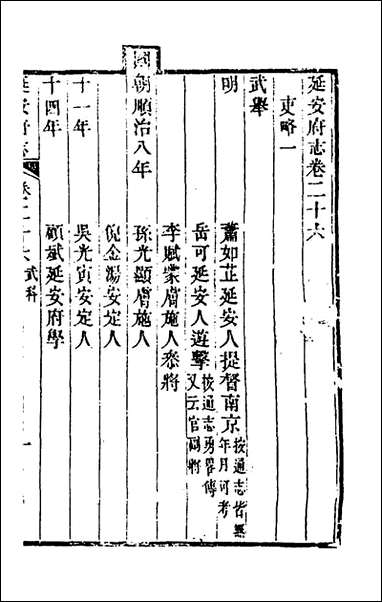 延安府志卷二十六
吏略一
武舉
明 蕭如芷延安人提督南京按通志皆無年月可考
岳可延安人遊擊按通志勇畧傳又云官副將
李賦蒙膚施人叅將
國朝順治八年 孫光顯膚施人
倪金湯安定人
十一年 吳光寅安定人
十四年 顧斌延安府學
延安府志 卷二十六 武科 一